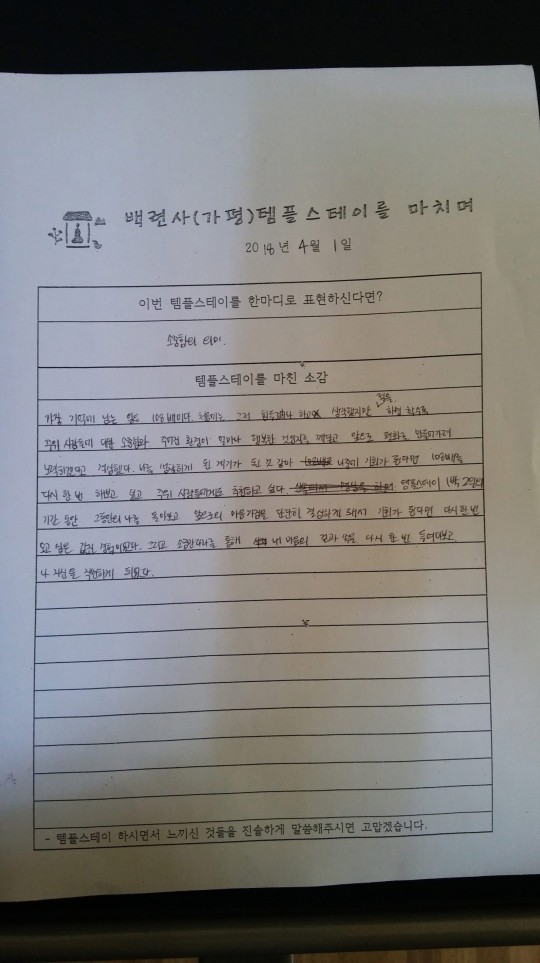 백련사(가평)템플스테이를 마치며
2018년 4월 1일
이번 템플스테이를 한마디로 표현하신다면?
소중함의 의미.
템플스테이를 마친 소감
가장 기억에 남는 일은 108배이다. 처음에는 그저 힘들겠구나 하고 생각했지만 절을 하면 할수록
주위 사람들에 대한 소중함과 주어진 환경이 얼마나 행복한 것인지를 깨닫고 앞으로 변화를 만들어가려
노력하겠다고 결심했다. 나를 발견하게 된 계기가 된 것 같아 나중에 기회가 된다면 108배를
다시 한 번 해보고 싶고 주위 사람들에게도 추천하고 싶다. 템플스테이 1박 2일의
기간 동안 그동안의 나를 돌아보고 앞으로의 마음가짐을 단단히 결심하게 돼서 기회가 된다면 다시 한 번
오고 싶은 값진 경험이었다. 그리고 소금만다라를 통해 내 마음의 겉과 속을 다시 한 번 들여다보고
나 자신을 되돌아보게 되었다.
- 템플스테이 하시면서 느끼신 것들을 진솔하게 말씀해주시면 고맙겠습니다.